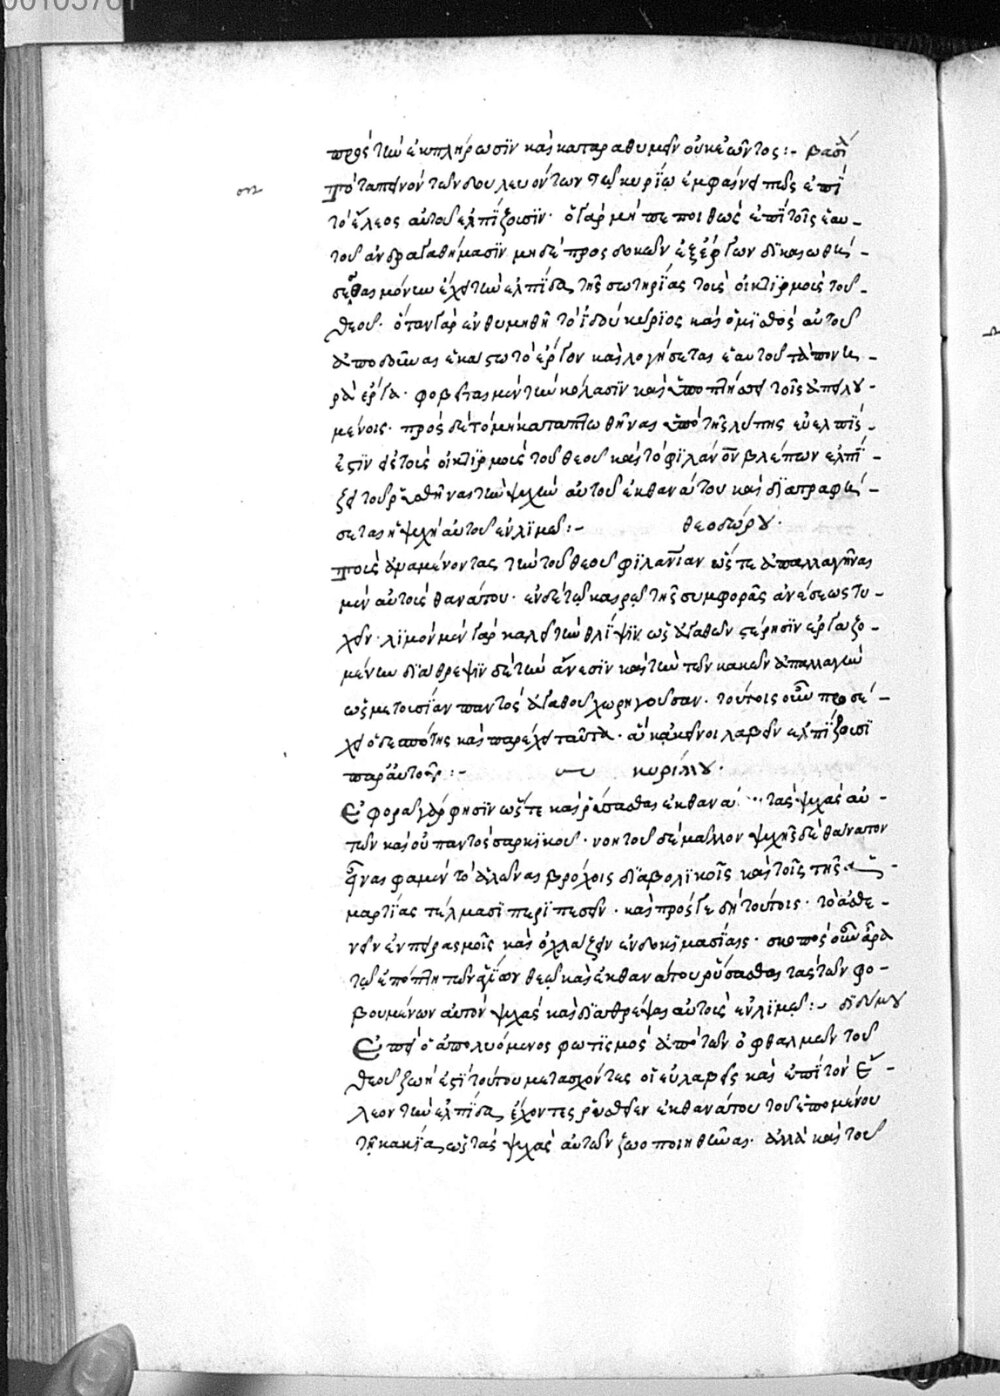 00103781
πρὸς τὴν ἐκπλήρωσϊν καὶ καταραθυμεῖν οὐκ ἐῶντος :- βασιλ
Τὸ ταπεινὸν τῶν δουλευόντων τῷ κυρίῳ ἐμφαίνει πῶς ἐπὶ
τὸ ἔλεος αὐτοῦ ἐλπίζουσϊν· ὁ γὰρ μὴ πεποιθὼς ἐπὶ τοῖς ἑαυ-
τοῦ ἀνδραγαθήμασϊν μηδὲ προσδοκῶν ἐξ ἔργων δϊκαιωθή-
σεσθαι μόνην ἔχει τὴν ἐλπίδα τῆς σωτηρίας τοὺς οἰκτιρμοὺς τοῦ
θεοῦ· ὅταν γὰρ ἐνθυμηθῇ τὸ ἰδοὺ κύριος καὶ ὁ μισθὸς αὐτοῦ
ἀποδοῦναι ἑκάστω τὸ ἔργον καὶ λογήσεται ἑαυτοῦ τὰ πονη-
ρὰ ἔργα· φοβεῖται μὲν τὴν κόλασϊν καὶ ὑποπτήσσει τοῖς ἀπειλου-
μένοις· πρὸς δὲ τὸ μὴ καταποθῆναι ὑπὸ τῆς λύπης εὔελπίς
ἐστϊν εἰς τοὺς οἰκτϊρμοὺς τοῦ θεοῦ καὶ τὸ φϊλάνον βλέπων ἐλπί-
ζει τοῦ ῥυσθῆναι τὴν ψυχὴν αὐτοῦ ἐκ θανάτου καὶ δϊατραφή-
σεται ἡ ψυχὴ αὐτοῦ ἐν λϊμῷ :- θεοδώρου·
Τοὺς ἀναμένοντας τὴν τοῦ θεοῦ φϊλανίαν ὥστε ἀπαλλαγῆναι
μὲν αὐτοὺς θανάτου· ἐν δὲ τῷ καιρῷ τῆς συμφορᾶς ἀνέσεως τυ-
χεῖν· λϊμὸν μὲν γὰρ καλεῖ τὴν θλίψϊν ὡς ἀγαθῶν στέρησϊν ἐργαζο-
μένην δϊάθρεψϊν δὲ τὴν ἄνεσϊν καὶ τὴν τῶν κακῶν ἀπαλλαγὴν
ὡς μετουσίαν παντὸς ἀγαθοῦ χωρηγοῦσαν· τούτοις οὖν προσέ-
χει ὁ δεσπότης καὶ παρέχει ταῦτα· ἃ κἀκεῖνοι λαβεῖν ἐλπίζουσϊ
παρ' αὐτοῦ :- κυρίλλου·
Ἐφορᾷ γάρ φησϊν ὥστε καὶ ῥύσασθαι ἐκ θανά τας ψυχὰς αὐ-
τῶν καὶ οὐ παντὸς σαρκϊκοῦ· νοητοῦ δὲ μᾶλλον ψυχῆς δὲ θάνατον
εἶναι φαμὲν τὸ ἁλῶναι βρόχοις δϊαβολϊκοῖς καὶ τοῖς τῆς ἁ-
μαρτίας τέλμασϊ περϊπεσεῖν· καὶ πρός γε δὴ τούτοις· τὸ ἀσθε-
νεῖν ἐν πειρασμοῖς καὶ ὀκλάζειν ἐν δοκϊμασίαις· σκοπὸς οὖν ἄρα
τῷ ἐπόπτη τῶν ὅλων θεῷ καὶ ἐκ θανάτου ῥύσασθαι τὰς τῶν φο-
βουμένων αὐτὸν ψυχὰς καὶ δϊαθρέψαι αὐτοὺς ἐν λϊμῷ :- διδύμου
Ἐπεὶ ὁ ἀπολυόμενος φωτϊσμὸς ἀπὸ τῶν ὀφθαλμῶν τοῦ
θεοῦ ζωή ἐστϊ τούτου μετασχόντες οἱ εὐλαβεῖς καὶ ἐπὶ τὸν ἔ-
λεον τὴν ἐλπίδα ἔχοντες ῥύσθειεν ἐκ θανάτου τοῦ ἑπομένου
τῇ κακίᾳ ὡς τὰς ψυχὰς αὐτῶν ζωοποιηθῆναι· ἀλλὰ καὶ τοῦ